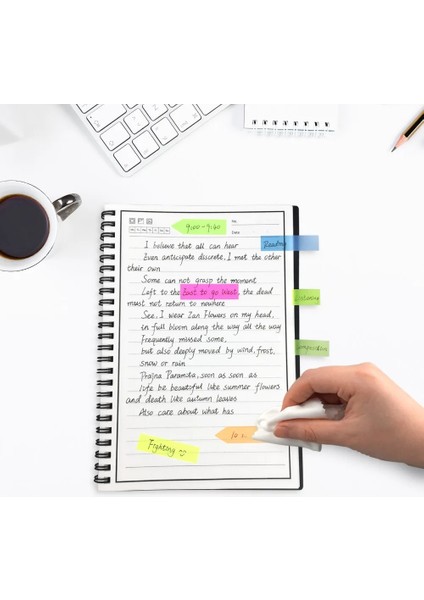 9:00-9:40
No.
Date.
I believe that all can hear
Reading
Even anticipate discrete, I met the other
their own
Some can not grasp the moment
Left to the East to go West, the dead
Listening
must not return to nowhere
See, I wear Zan Flowers on my head,
in full bloom along the way all the way
Frequently missed some,
but also deeply moved by wind, frost,
Composition
snow or rain
Prajna Paramita, soon as soon as
life be beautiful like summer flowers
and death like autumn leaves
Also care about what has
10
Fighting